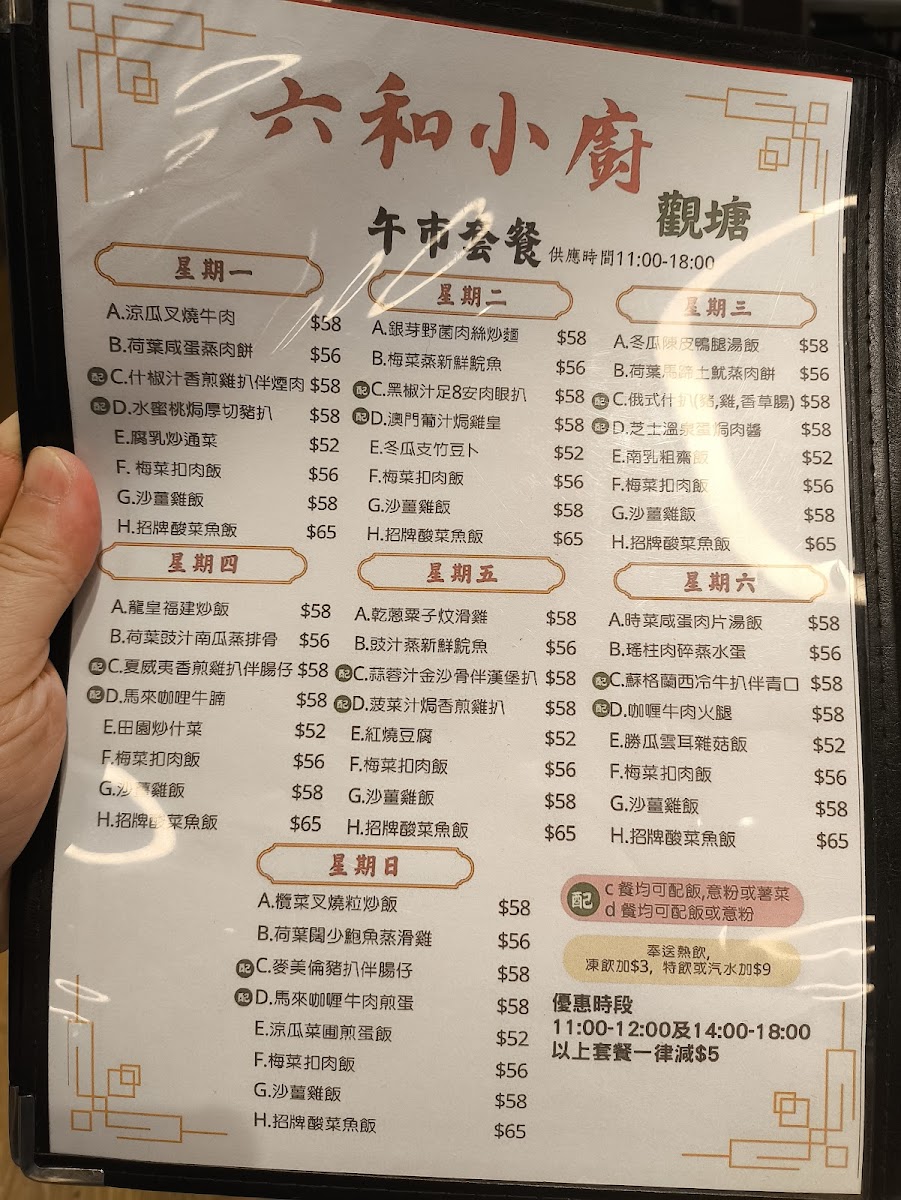 六和小廚
觀塘
午市套餐 供應時間11:00-18:00
星期一
A.涼瓜叉燒牛肉 $58
B.荷葉咸蛋蒸肉餅 $56
配 C.什椒汁香煎雞扒伴煙肉 $58
配 D.水蜜桃焗厚切豬扒 $58
E.腐乳炒通菜 $52
F.梅菜扣肉飯 $56
G.沙薑雞飯 $58
H.招牌酸菜魚飯 $65
星期二
A.銀芽野菌肉絲炒麵 $58
B.梅菜蒸新鮮鯇魚 $56
配 C.黑椒汁足8安肉眼扒 $58
配 D.澳門葡汁焗雞皇 $58
E.冬瓜支竹豆卜 $52
F.梅菜扣肉飯 $56
G.沙薑雞飯 $58
H.招牌酸菜魚飯 $65
星期三
A.冬瓜陳皮鴨腿湯飯 $58
B.荷葉馬蹄土魷蒸肉餅 $56
配 C.俄式什扒(豬,雞,香草腸) $58
配 D.芝士溫泉蛋焗肉醬 $58
E.南乳粗齋飯 $52
F.梅菜扣肉飯 $56
G.沙薑雞飯 $58
H.招牌酸菜魚飯 $65
星期四
A.龍皇福建炒飯 $58
B.荷葉豉汁南瓜蒸排骨 $56
配 C.夏威夷香煎雞扒伴腸仔 $58
配 D.馬來咖喱牛腩 $58
E.田園炒什菜 $52
F.梅菜扣肉飯 $56
G.沙薑雞飯 $58
H.招牌酸菜魚飯 $65
星期五
A.乾蔥粟子炆滑雞 $58
B.豉汁蒸新鮮鯇魚 $56
配 C.蒜蓉汁金沙骨伴漢堡扒 $58
配 D.菠菜汁焗香煎雞扒 $58
E.紅燒豆腐 $52
F.梅菜扣肉飯 $56
G.沙薑雞飯 $58
H.招牌酸菜魚飯 $65
星期六
A.時菜咸蛋肉片湯飯 $58
B.瑤柱肉碎蒸水蛋 $56
配 C.蘇格蘭西冷牛扒伴青口 $58
配 D.咖喱牛肉火腿 $58
E.勝瓜雲耳雜菇飯 $52
F.梅菜扣肉飯 $56
G.沙薑雞飯 $58
H.招牌酸菜魚飯 $65
星期日
A.欖菜叉燒粒炒飯 $58
B.荷葉闊少鮑魚蒸滑雞 $56
配 C.麥美倫豬扒伴腸仔 $58
配 D.馬來咖喱牛肉煎蛋 $58
E.涼瓜菜圃煎蛋飯 $52
F.梅菜扣肉飯 $56
G.沙薑雞飯 $58
H.招牌酸菜魚飯 $65
配 c 餐均可配飯,意粉或薯菜
d 餐均可配飯或意粉
奉送熱飲,
凍飲加$3, 特飲或汽水加$9
優惠時段
11:00-12:00及14:00-18:00
以上套餐一律減$5